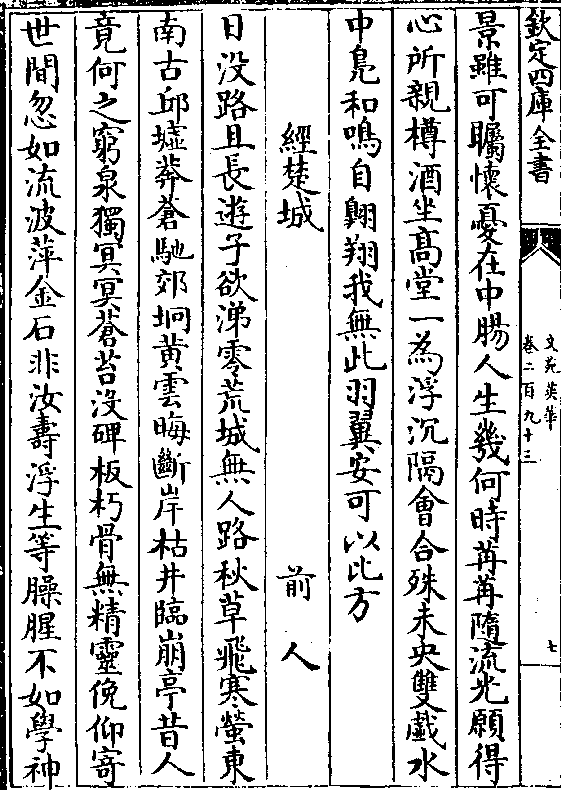 欽定四庫全書
文苑英華
卷二百九十三
七
景雖可矚懷憂在中腸人生幾何時苒苒隨流光願得
心所親樽酒坐高堂一為浮沉隔會合殊未央雙戲水
中鳬和鳴自翺翔我無此羽翼安可以比方
經楚城
前人
日没路且長遊子欲涕零荒城無人路秋草飛寒螢東
南古邱墟莽蒼馳郊坰黄雲晦斷岸枯井臨崩亭昔人
竟何之窮泉獨冥冥蒼苔没碑板朽骨無精靈俛仰寄
世間忽如流波萍金石非汝壽浮生等臊腥不如學神